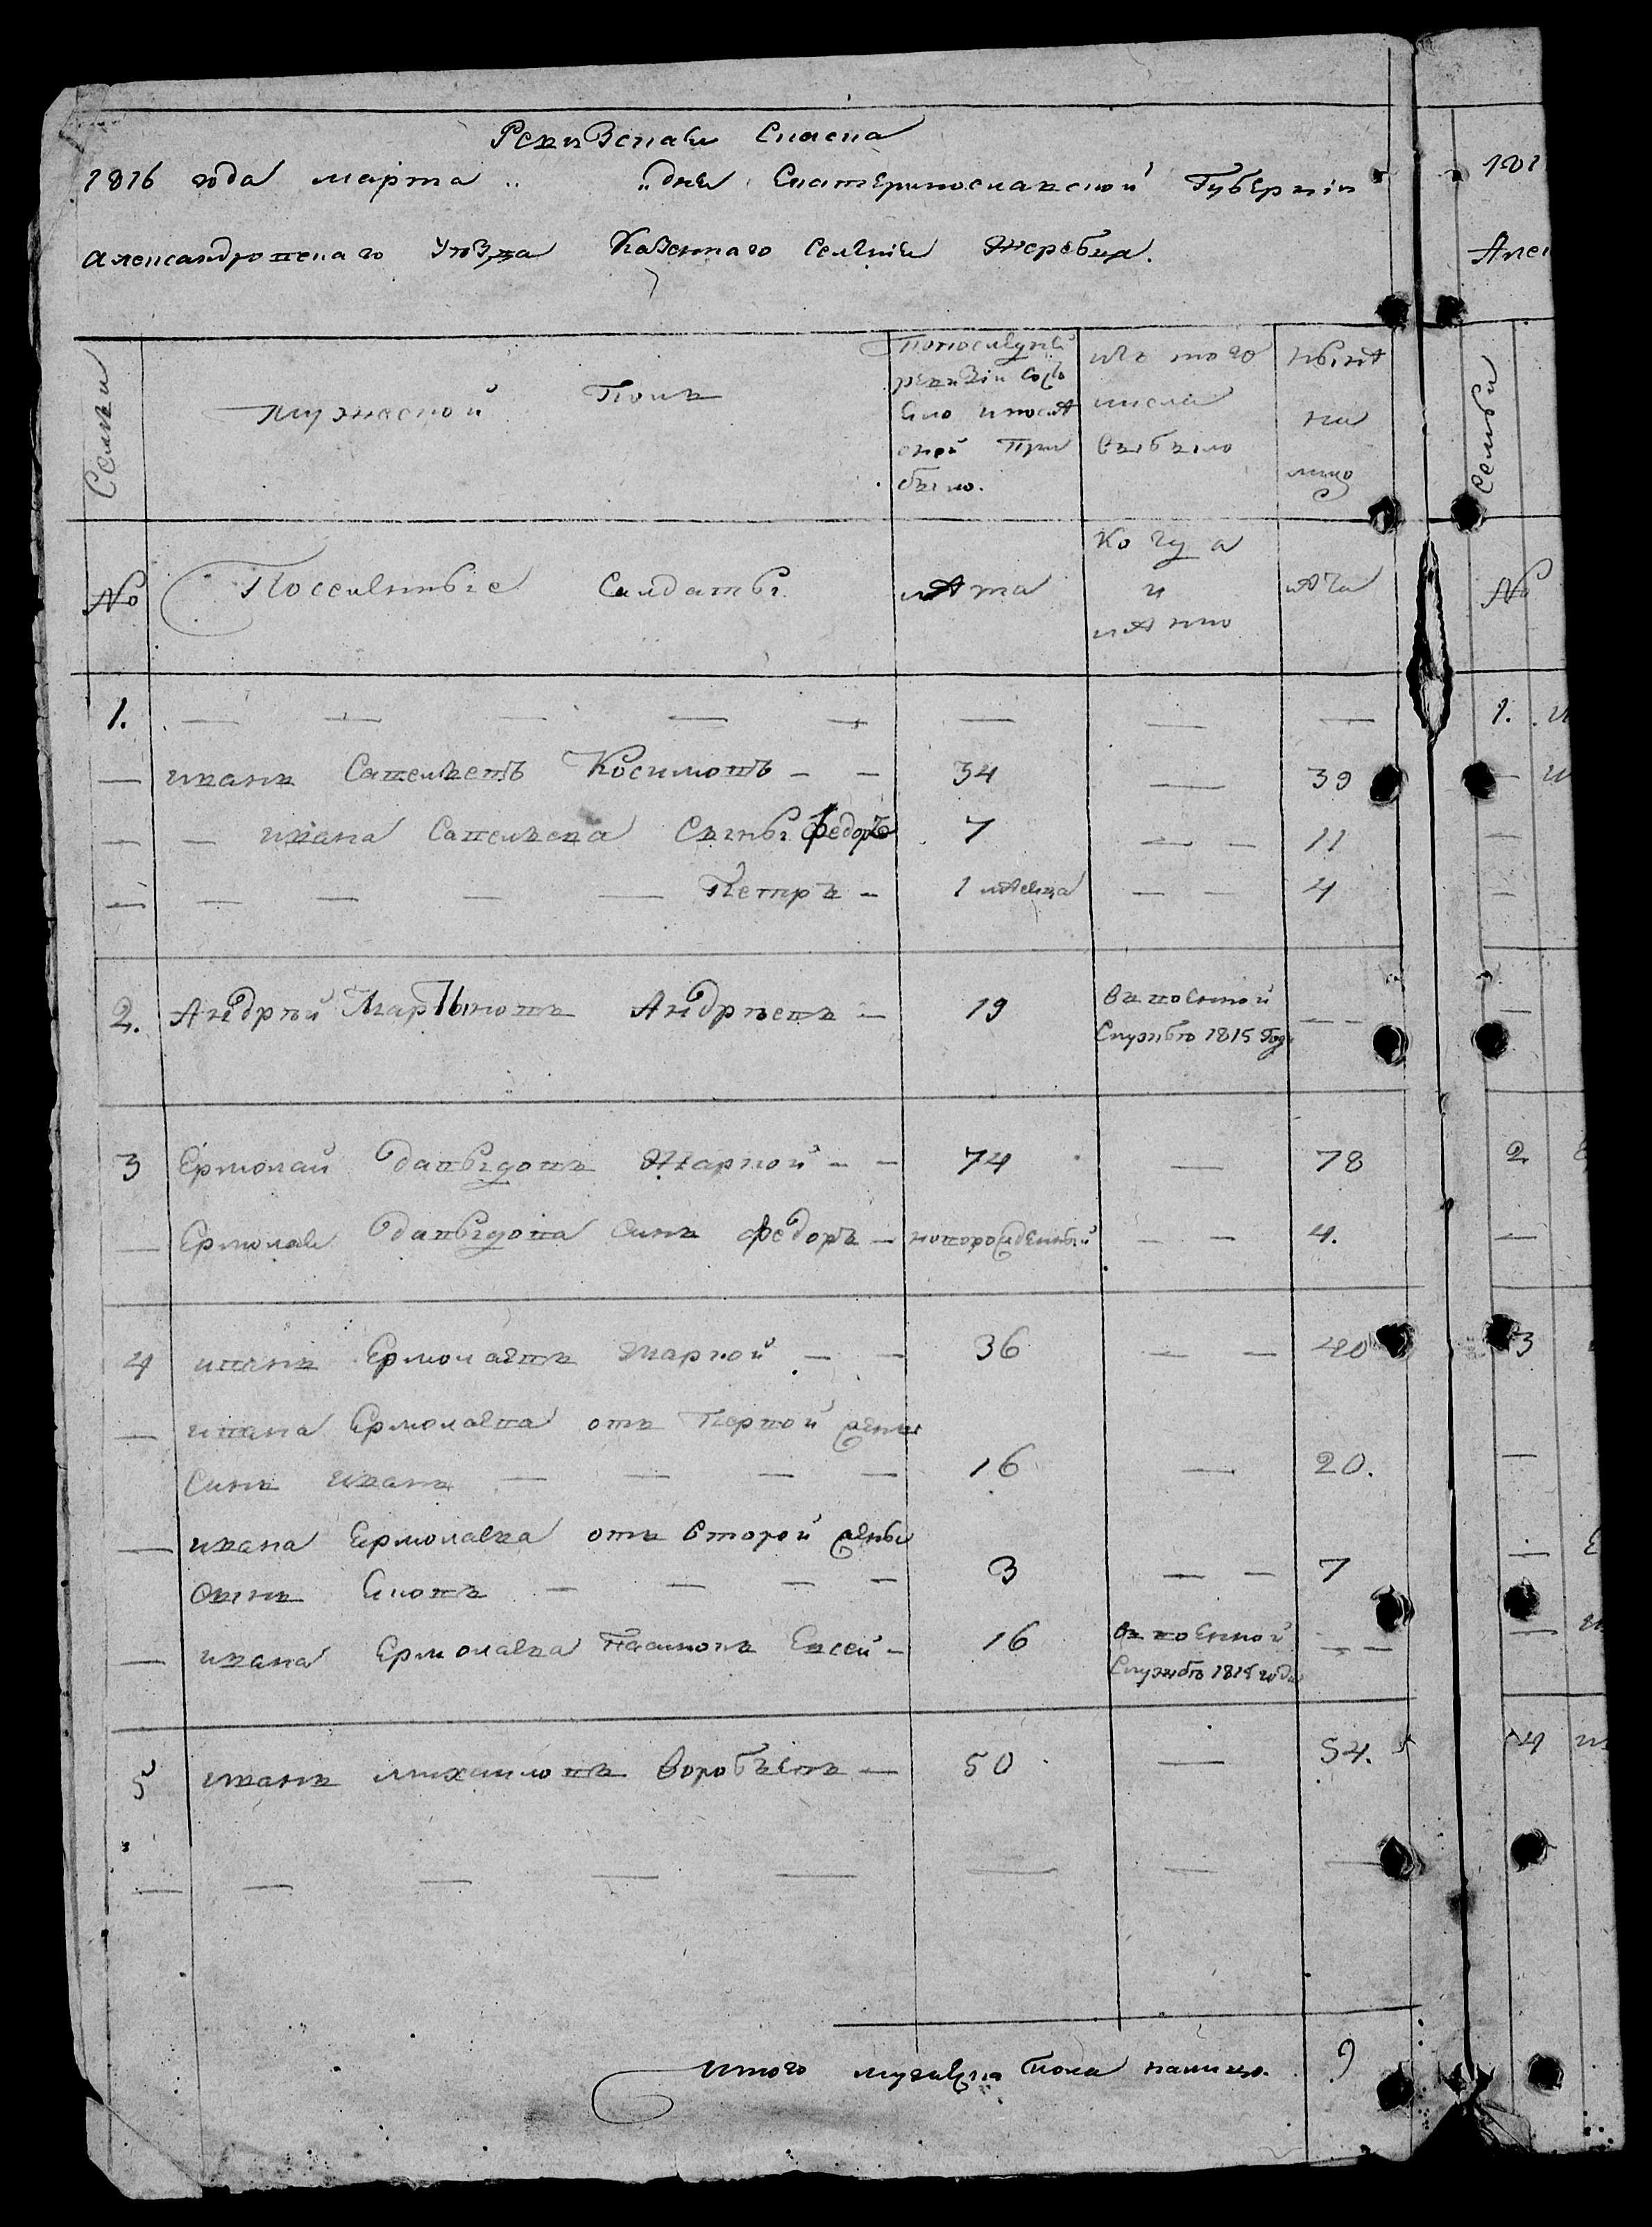 Ревизская Сказка
1816 года марта „ „ дня Екатеринославской Губернiи
Александровскаго Уѣзда Казеннаго Селенiя Жеребца.
Семьи
Мужеской Полъ
По последней
ревизiи состо
яло и после
оной при
было.
изъ того
числа
выбыло
Нынѣ
на
лицо
№
Поселенные Салдаты
лѣта
Когда
и
лѣта
1.
Иванъ Савельевъ Косимовъ 34 39
Ивана Савельева Сыны Федоръ 7 11
Петръ 1 мѣсяца 4
2. Андрѣй Мартыновъ Андрѣевъ 19 въ военной
Службѣ 1815 Года
3 Ермолай Давыдовъ Жарной 74 78
Ермолая Давыдова Синъ Федоръ новорожденный 4.
4 Иванъ Ермолаевъ Жарной 36 40
Ивана Ермолаева отъ Первой жены
Синъ Иванъ 16 20.
Ивана Ермолаева отъ второй жены
Сынъ 3 7
Ивана Ермолаева Евсей 16 въ военной
Службѣ 1815 года
5 Иванъ Михайловъ Воробъевъ 50 54.
Итого мужеска пола налицо. 9
Семьи
№
1.
2
3
4